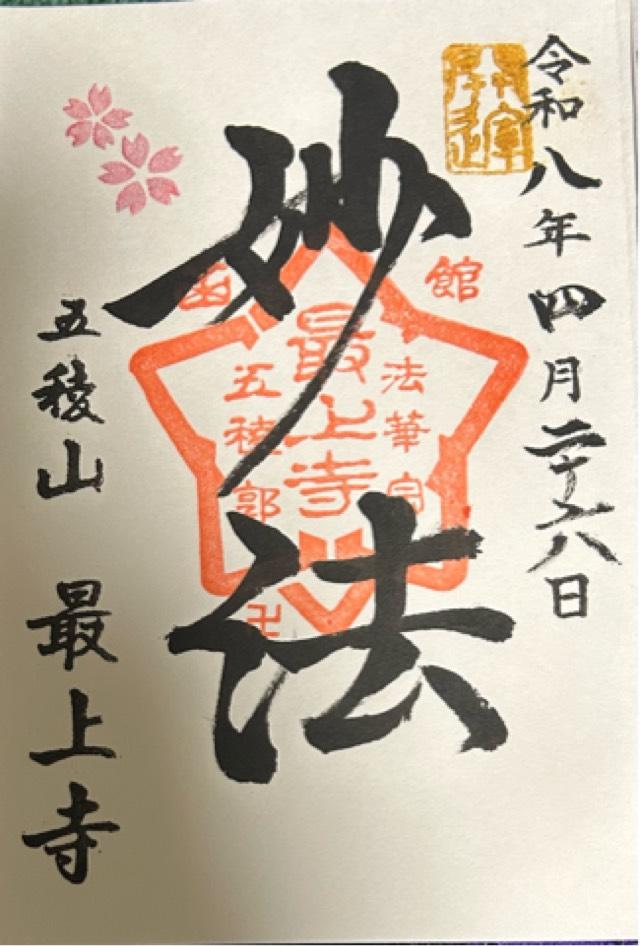 令和八年四月二十六日
開運
妙法
函館
法華宗
最上寺
五稜郭
卍
五稜山 最上寺